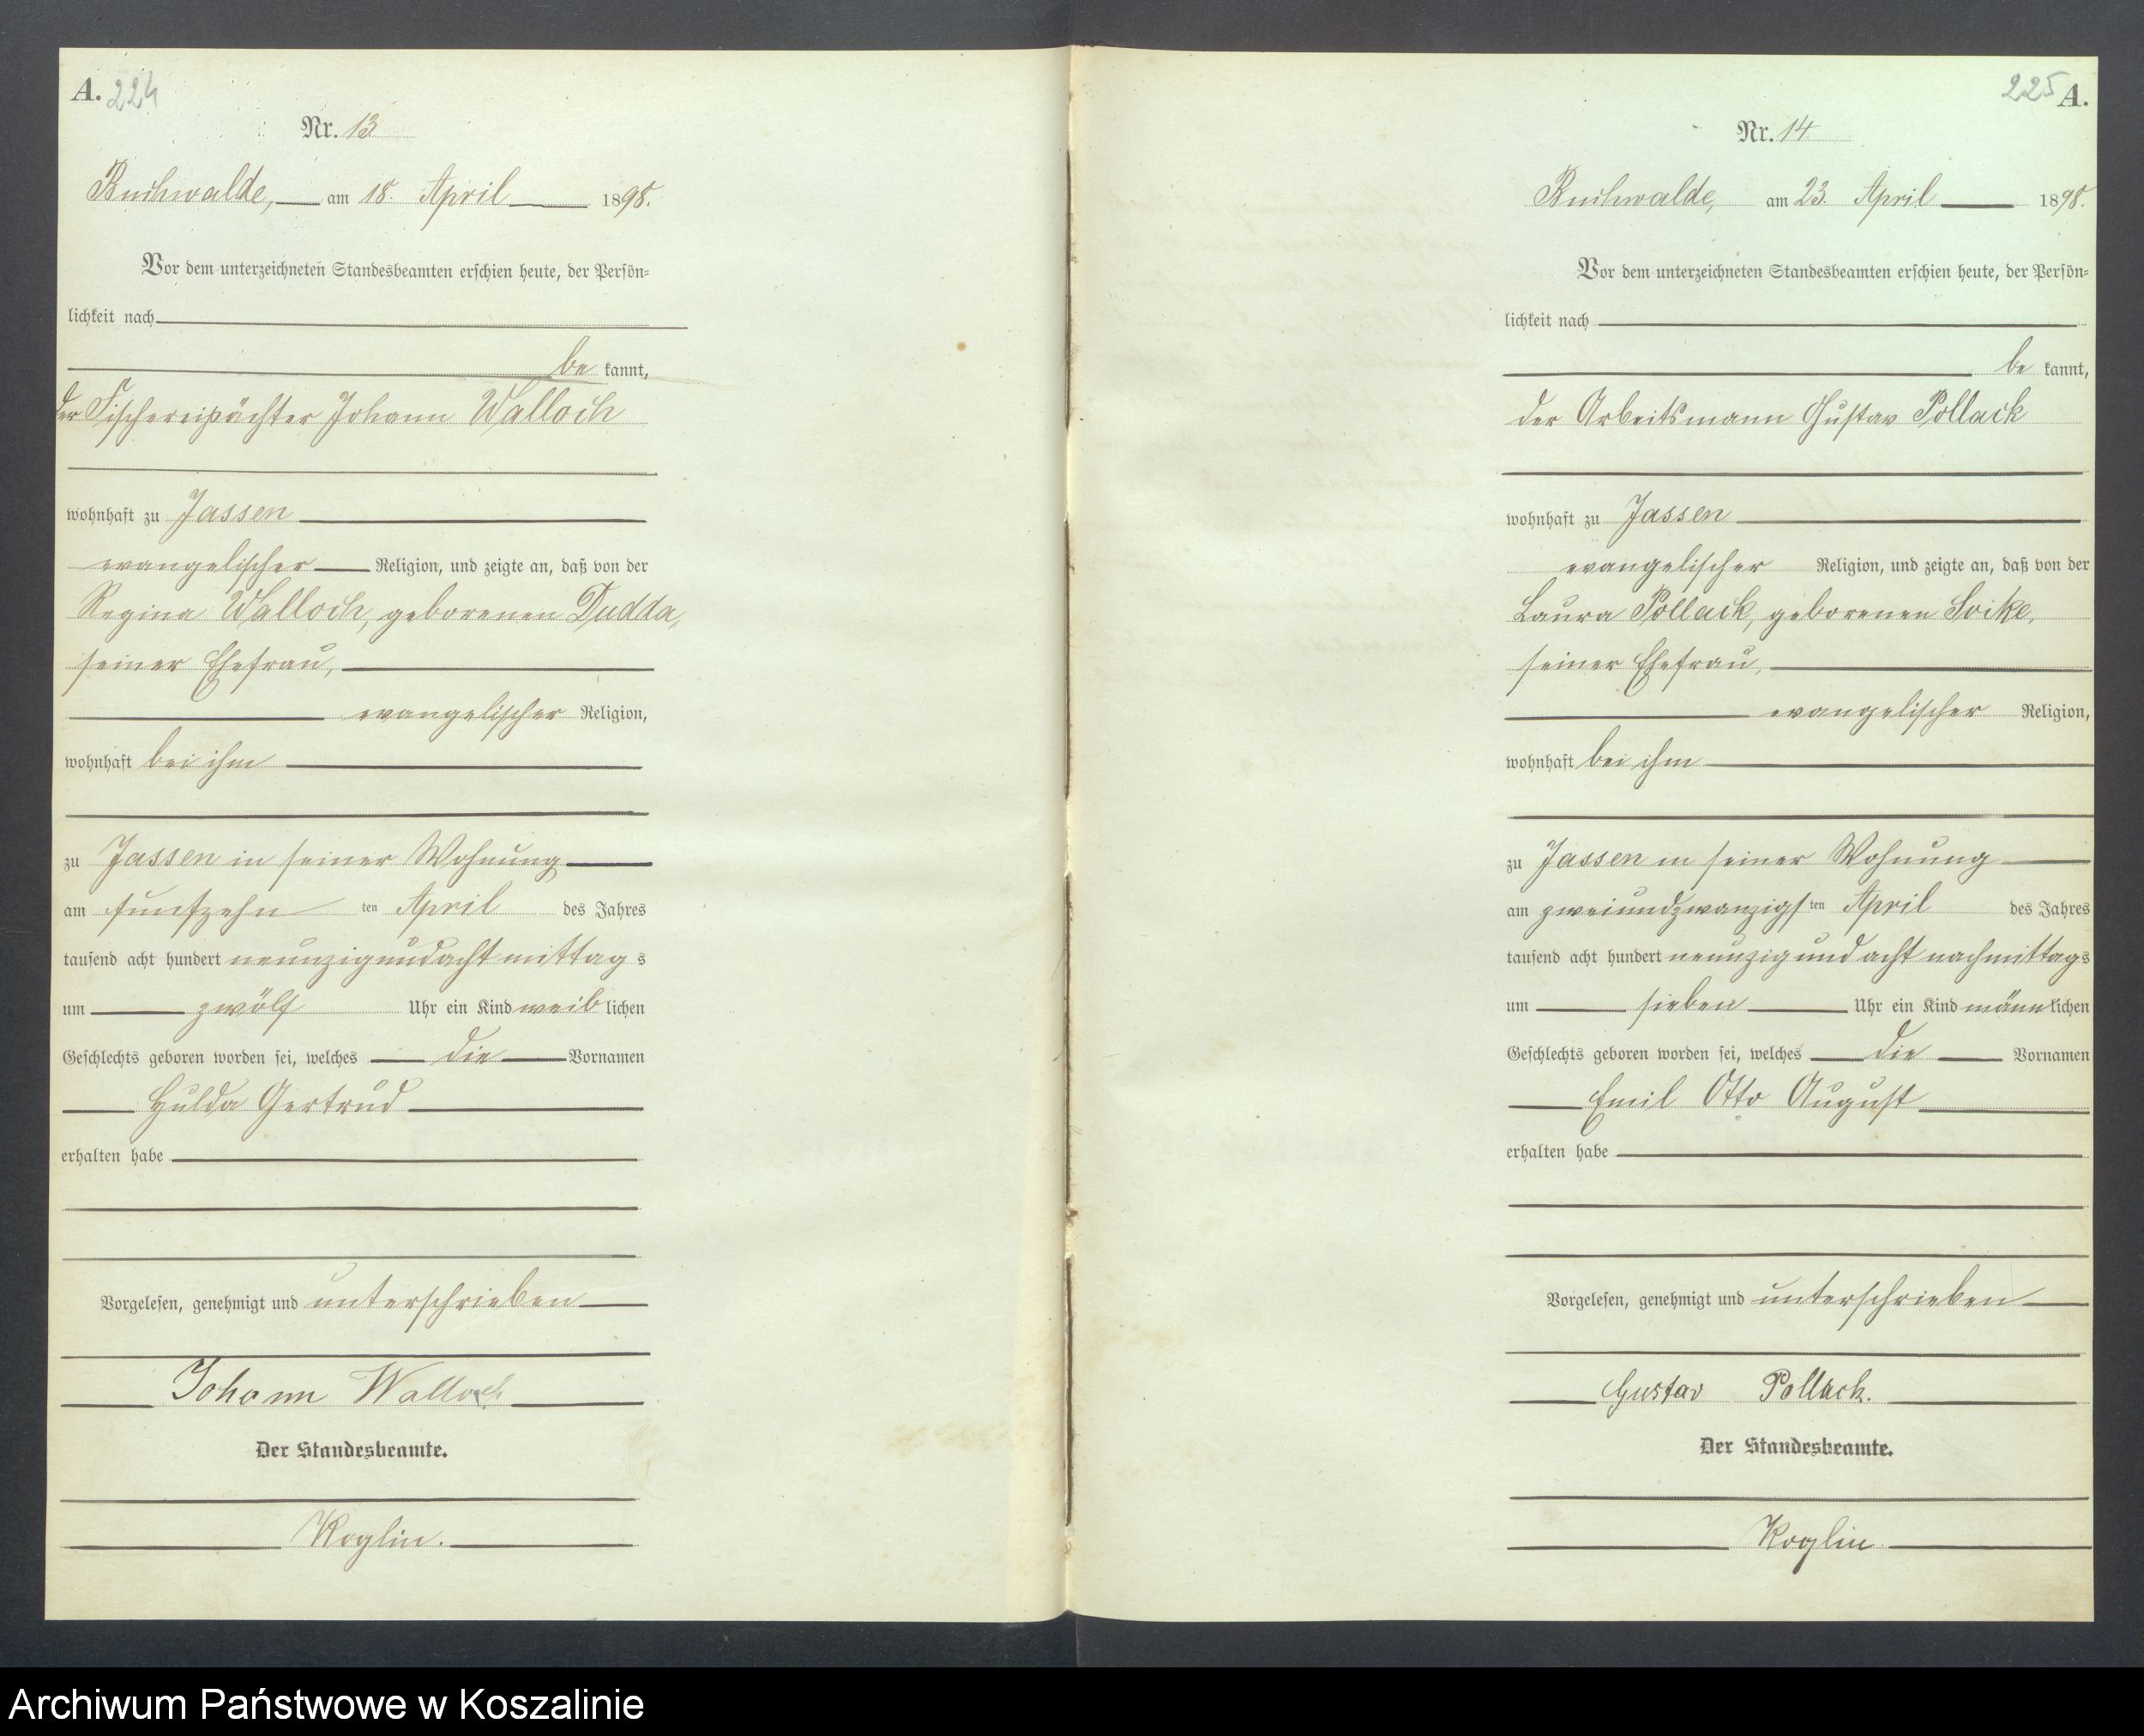 A. 224
Nr. 13
Buchwalde, am 18. April 1898.
Vor dem unterzeichneten Standesbeamten erschien heute, der Persön-
lichkeit nach
be kannt,
der Fischereipächter Johann Walloch
wohnhaft zu Jassen
evangelischer Religion, und zeigte an, daß von der
Regina Walloch, geborenen Dudda,
seiner Ehefrau,
evangelischer Religion,
wohnhaft bei ihm
zu Jassen in seiner Wohnung
am funfzehn ten April des Jahres
tausend acht hundert neunzigundacht mittag s
um zwölf Uhr ein Kind weib lichen
Geschlechts geboren worden sei, welches die Vornamen
Hulda Gertrud
erhalten habe
Vorgelesen, genehmigt und unterschrieben
Johann Walloch
Der Standesbeamte.
Koglin.
225 A.
Nr. 14
Buchwalde, am 23. April 1898.
Vor dem unterzeichneten Standesbeamten erschien heute, der Persön-
lichkeit nach
be kannt,
der Arbeitsmann Gustav Pollack
wohnhaft zu Jassen
evangelischer Religion, und zeigte an, daß von der
Laura Pollack, geborenen
seiner Ehefrau,
evangelischer Religion,
wohnhaft bei ihm
zu Jassen in seiner Wohnung
am zweiundzwanzigs ten April des Jahres
tausend acht hundert neunzig und acht nachmittags
um sieben Uhr ein Kind männ lichen
Geschlechts geboren worden sei, welches die Vornamen
Emil Otto August
erhalten habe
Vorgelesen, genehmigt und unterschrieben
Gustav Pollack.
Der Standesbeamte.
Koglin.
Archiwum Państwowe w Koszalinie